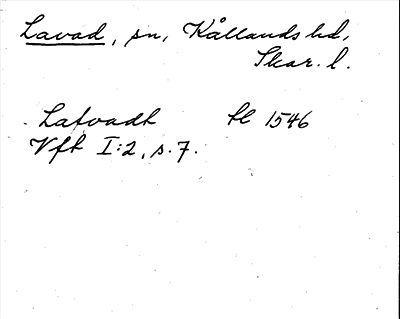 Lavad, sn, Kållands hd,
Skar. l.
Lafvadh fl 1546
Vft I:2, s. 7.